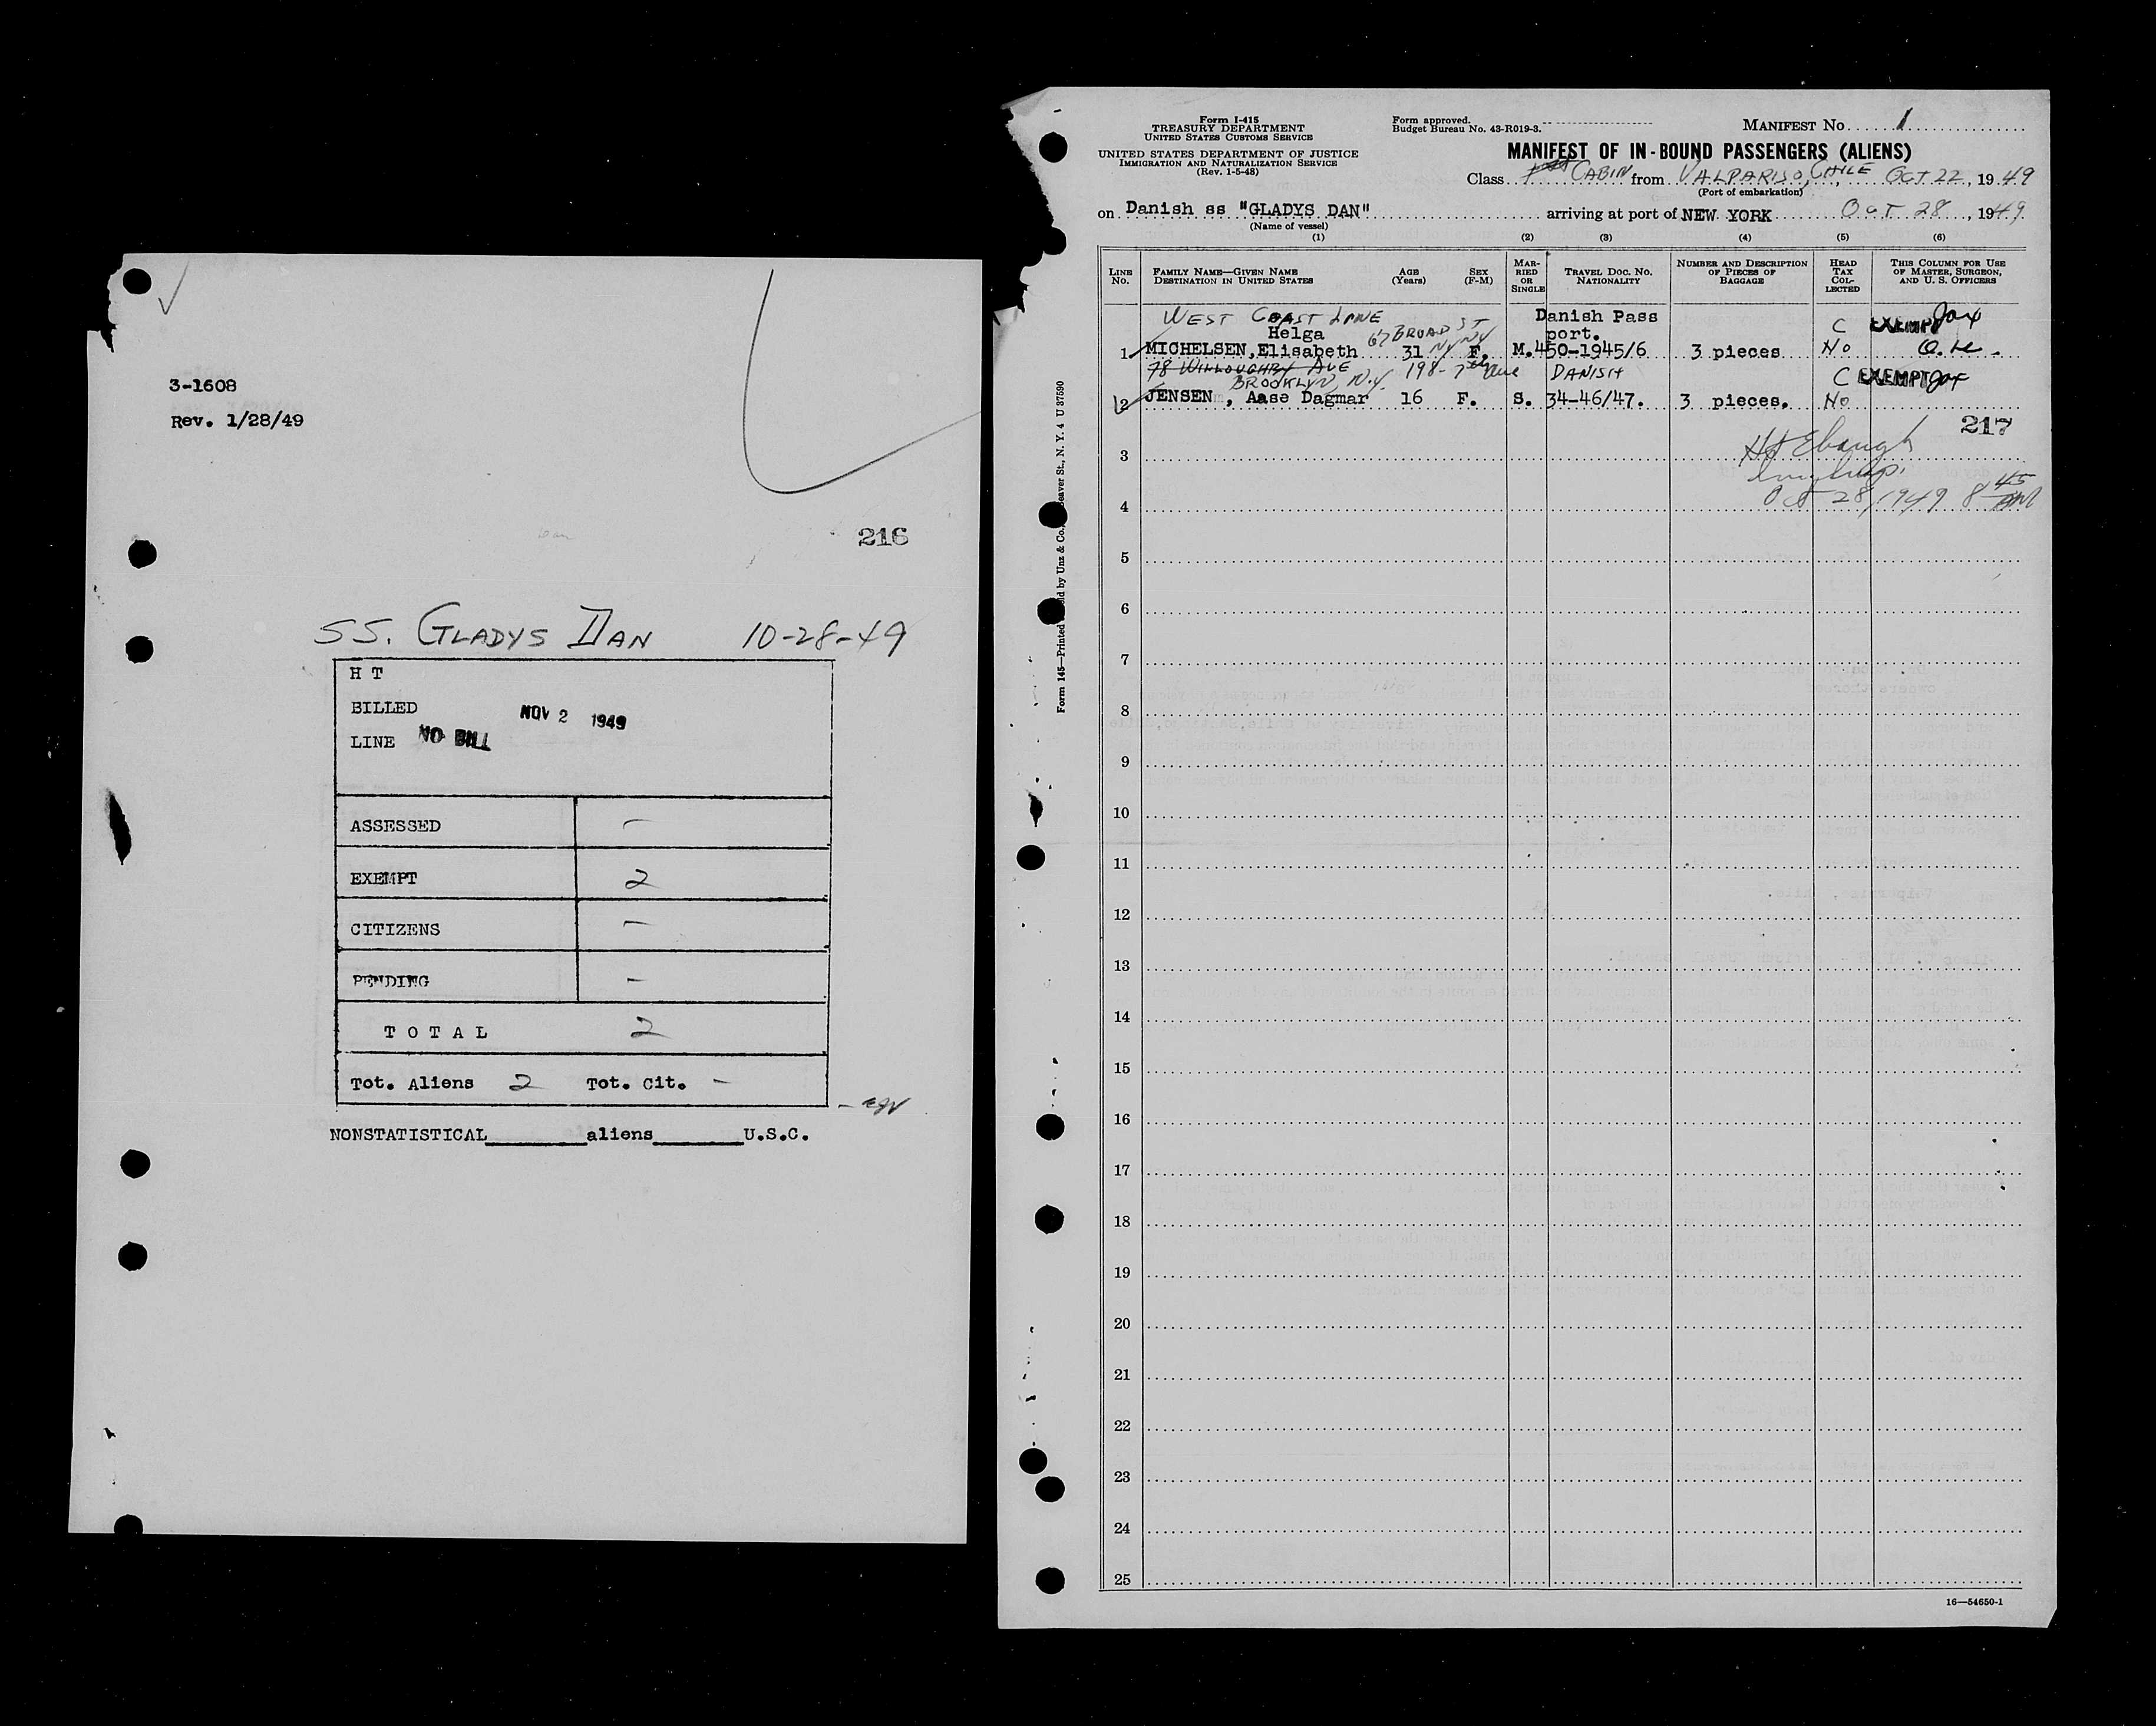 3-1608
Rev. 1/28/49
216
SS. GLADYS DAN 10-28-49
H T
BILLED NOV 2 1949
LINE NO BILL
ASSESSED —
EXEMPT 2
CITIZENS —
PENDING —
T O T A L 2
Tot. Aliens 2 Tot. Cit. —
NONSTATISTICAL________aliens________U.S.C.
Form I-415
TREASURY DEPARTMENT
UNITED STATES CUSTOMS SERVICE
UNITED STATES DEPARTMENT OF JUSTICE
IMMIGRATION AND NATURALIZATION SERVICE
(Rev. 1-5-48)
Form approved.
Budget Bureau No. 43-R019-3.
MANIFEST No. 1
MANIFEST OF IN-BOUND PASSENGERS (ALIENS)
Class CABIN from VALPARISO, CHILE OCT 22, 1949
(Port of embarkation)
on Danish ss "GLADYS DAN" arriving at port of NEW YORK OCT 28, 1949
(Name of vessel)
(1) (2) (3) (4) (5) (6)
LINE No.
FAMILY NAME—GIVEN NAME
DESTINATION IN UNITED STATES
AGE (Years)
SEX (F-M)
MARRIED OR SINGLE
TRAVEL DOC. NO.
NATIONALITY
NUMBER AND DESCRIPTION OF PIECES OF BAGGAGE
HEAD TAX COLLECTED
THIS COLUMN FOR USE OF MASTER, SURGEON, AND U. S. OFFICERS
WEST COAST LINE Danish Pass
Helga 67 BROAD ST port. C EXEMPT
1 MICHELSEN, Elisabeth 31 NY NY F. M. 450-1945/6 3 pieces No O.K.
78 WILLOUGHBY AVE 198-7th Ave DANISH
BROOKLYN, N.Y. C EXEMPT
2 JENSEN, Aase Dagmar 16 F. S. 34-46/47. 3 pieces. No
217
3
H Ebaugh
4
Oct 28, 1949 8 45 AM
5
6
7
8
9
10
11
12
13
14
15
16
17
18
19
20
21
22
23
24
25
16—54650-1